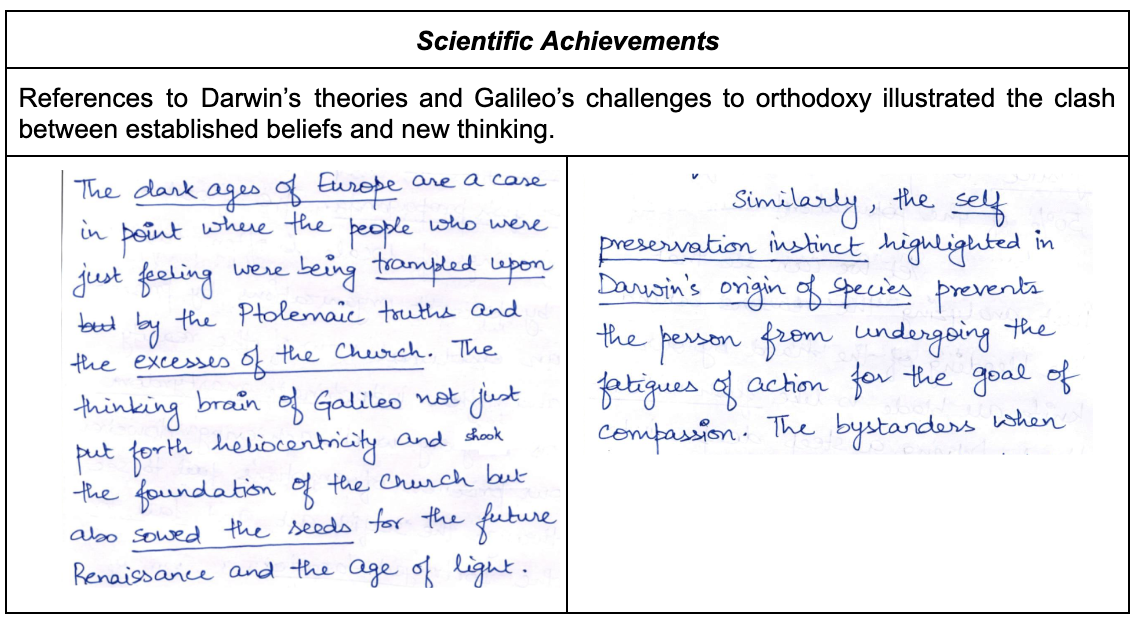 Scientific Achievements
References to Darwin's theories and Galileo's challenges to orthodoxy illustrated the clash
between established beliefs and new thinking.
The dark ages of Europe are a case
in point where the people who were
just feeling were being trampled upon
by the Ptolemaic truths and
the excesses of the Church. The
thinking brain of Galileo not just
put forth heliocentricity and shook
the foundation of the Church but
also sowed the seeds for the future
Renaissance and the age of light.
Similarly, the self
preservation instinct highlighted in
Darwin's origin of species prevents
the person from undergoing the
fatigues of action for the goal of
compassion. The bystanders when